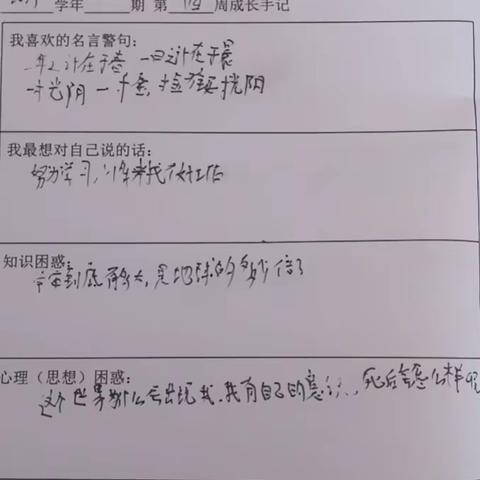 学年 期 第 四 周成长手记
我喜欢的名言警句:
一年之计在于春 一日之计在于晨
一寸光阴一寸金,寸金难买寸光阴
我最想对自己说的话:
努力学习,将来找个好工作
知识困惑:
宇宙到底有多大,是地球的多少倍?
心理(思想)困惑:
这个世界为什么会出现我,我有自己的意识,死后会怎么样呢